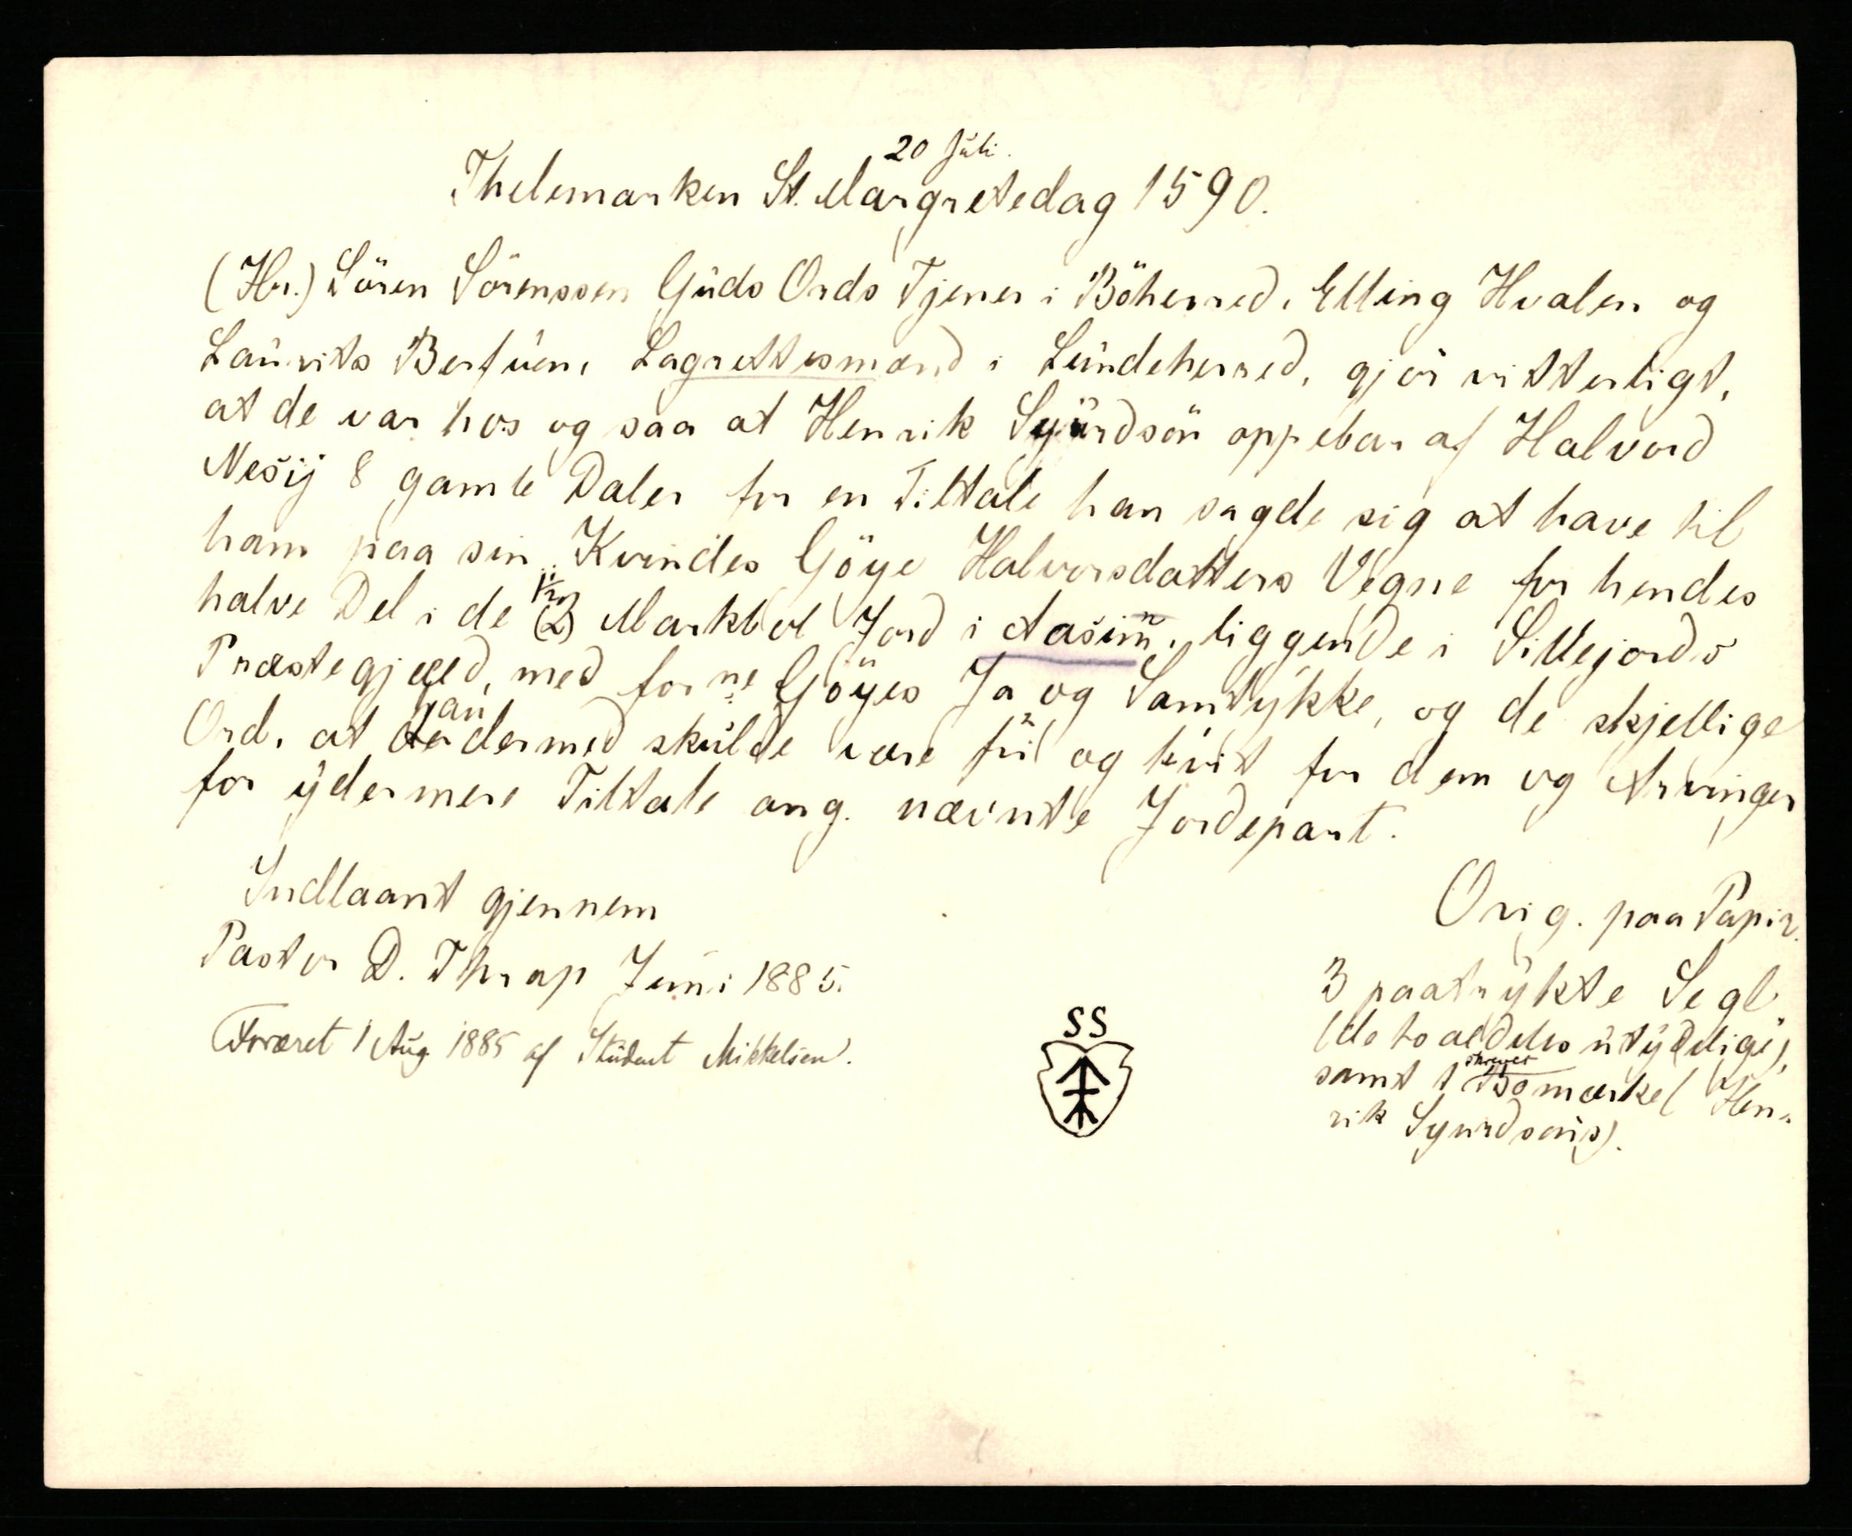 20 Juli.
Thelemarken St. Margretedag 1590.
(Hr.) Sören Sörenssen Guds Ords Tjener i Böherred, Elling Hvalen og
Laurits Berfuen, Lagrettesmænd i Lundeherred, gjör vitterligt,
at de var hos og saa at Henrik Syurdsön oppebar af Halvord
Nesij 8 gamle Daler for en Tiltale han sagde sig at have til
ham paa sin Kvindes Göye Halvorsdatters Vegne for hendes
halve Del i de (2) Markbol Jord i Aasim, liggende i Sillejords
Præstegjeld, med forne Göyes Ja og Samtykke, og de skjellige
Ord, at han dermed skulde være fri og kvit for dem og Arvinger
for ydermere Tiltale ang. nævnte Jordepart.
Indlaant gjennem
Pastor D. Thrap Juni 1885.
Foræret 1 Aug. 1885 af Student Mikkelsen.
Orig. paa Papir.
3 paatrykte Segl
(de to aldeles utydelige),
samt 1 skrevet Bomærke (Hen-
rik Syurdsöns).
SS